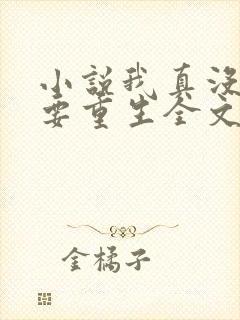 小说我真没
要重生全文
金橘子